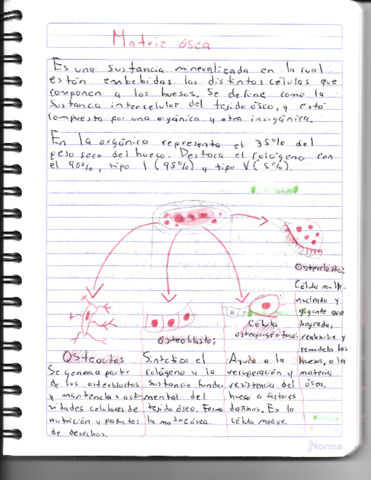 Matriz ósea
Es una sustancia mineralizada en la cual
están embebidas las distintas células que
componen a los huesos. Se define como la
sustancia intercelular del tejido óseo, y está
compuesta por una orgánica y otra inorgánica.
En la orgánica representa el 35% del
peso seco del hueso. Destaca el colágeno con
el 90%, tipo I (95%) y tipo V (5%).
Osteoclasto:
Célula multi-
nucleada y
gigante que
degrada,
reabsorbe y
remodela los
huesos, o la
materia
ósea.
Célula
osteoprogenitora:
Ayuda a la
recuperación y
resistencia del
hueso a facturas
daninos. Es la
célula madre.
Osteoblasto:
Sintetiza el
colágeno y la
sustancia funda-
mental del
tejido óseo. Forma
la matriz ósea.
Osteocito:
Se genera a partir
de los osteoblastos
y mantenelas acti-
vidades celulares de
nutrición y
de desechos.
Norma